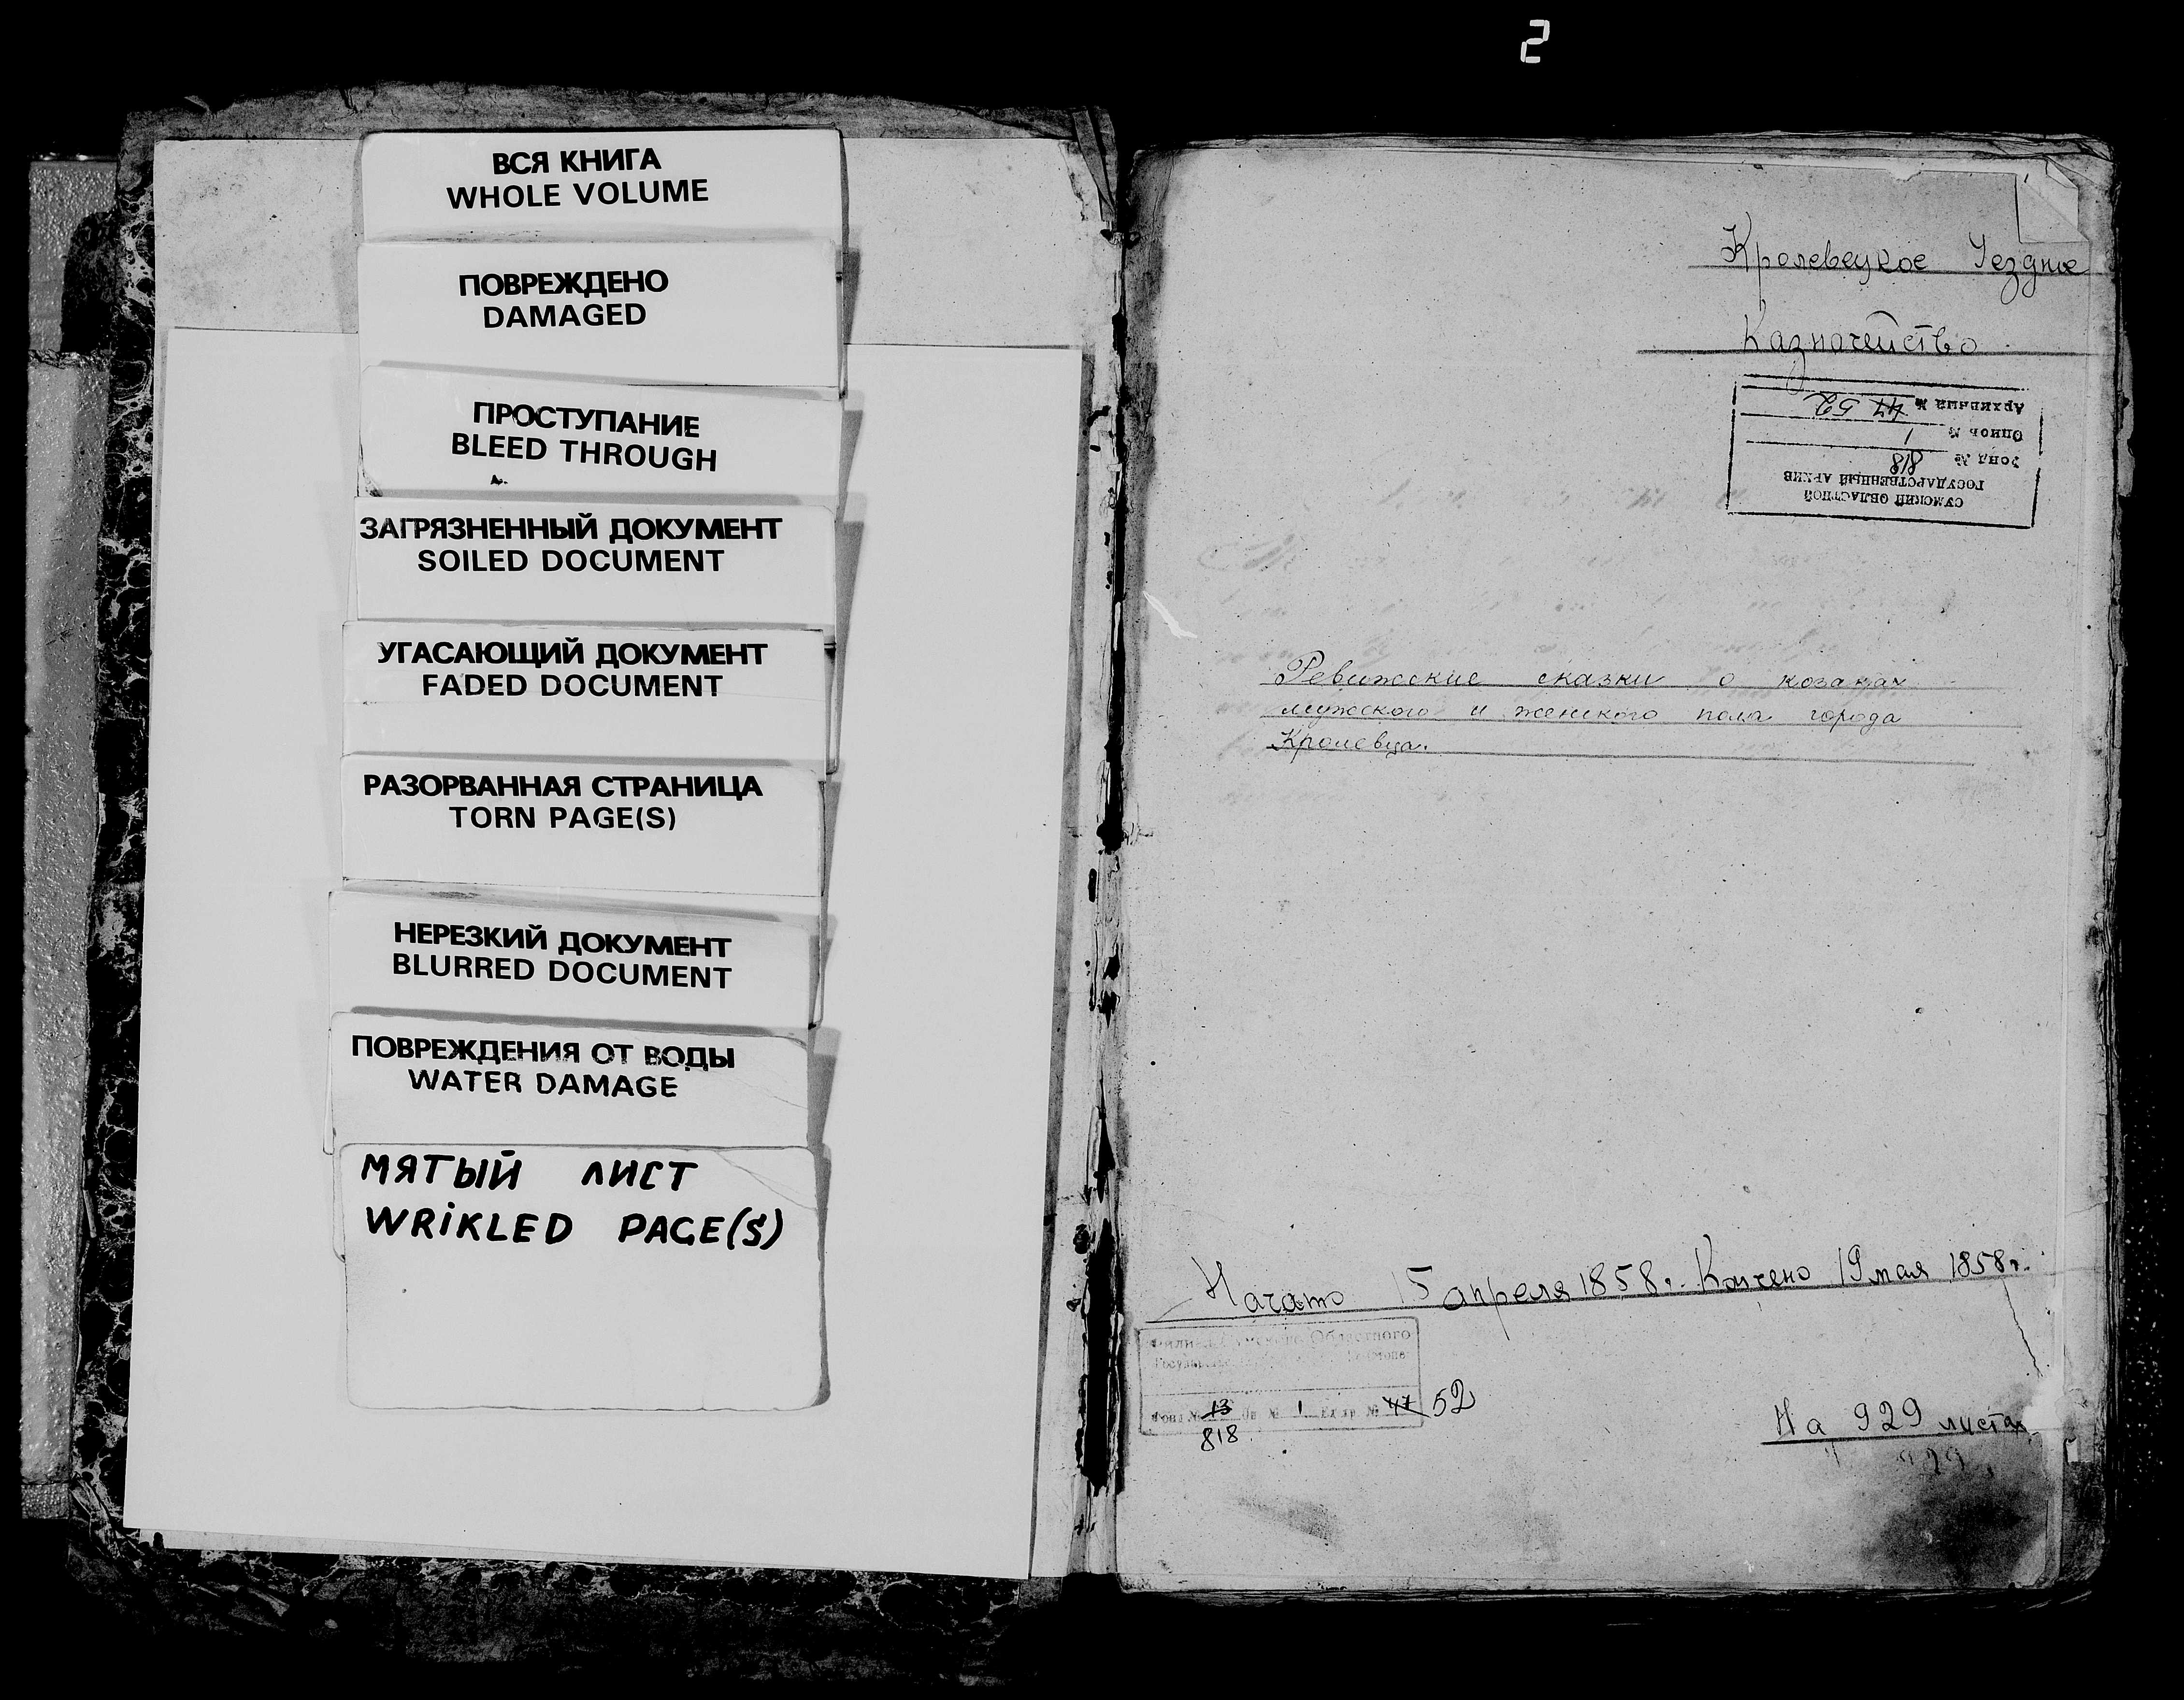 2
ВСЯ КНИГА
WHOLE VOLUME
ПОВРЕЖДЕНО
DAMAGED
ПРОСТУПАНИЕ
BLEED THROUGH
ЗАГРЯЗНЕННЫЙ ДОКУМЕНТ
SOILED DOCUMENT
УГАСАЮЩИЙ ДОКУМЕНТ
FADED DOCUMENT
РАЗОРВАННАЯ СТРАНИЦА
TORN PAGE(S)
НЕРЕЗКИЙ ДОКУМЕНТ
BLURRED DOCUMENT
ПОВРЕЖДЕНИЯ ОТ ВОДЫ
WATER DAMAGE
МЯТЫЙ ЛИСТ
WRIKLED PAGE(S)
Кролевецкое Уездное
Казначейство
СУМСКИЙ ОБЛАСТНОЙ
ГОСУДАРСТВЕННЫЙ АРХИВ
Фонд № 818
Опись № 1
Архивный № 47 52
Ревижские сказки о козаках
мужского и женского пола города
Кролевца.
Начато 15 апреля 1858г. Кончено 19 мая 1858г.
Областного
Фонд № 13 Оп № 1 Ед хр № 47 52
818
На 929 листах
929